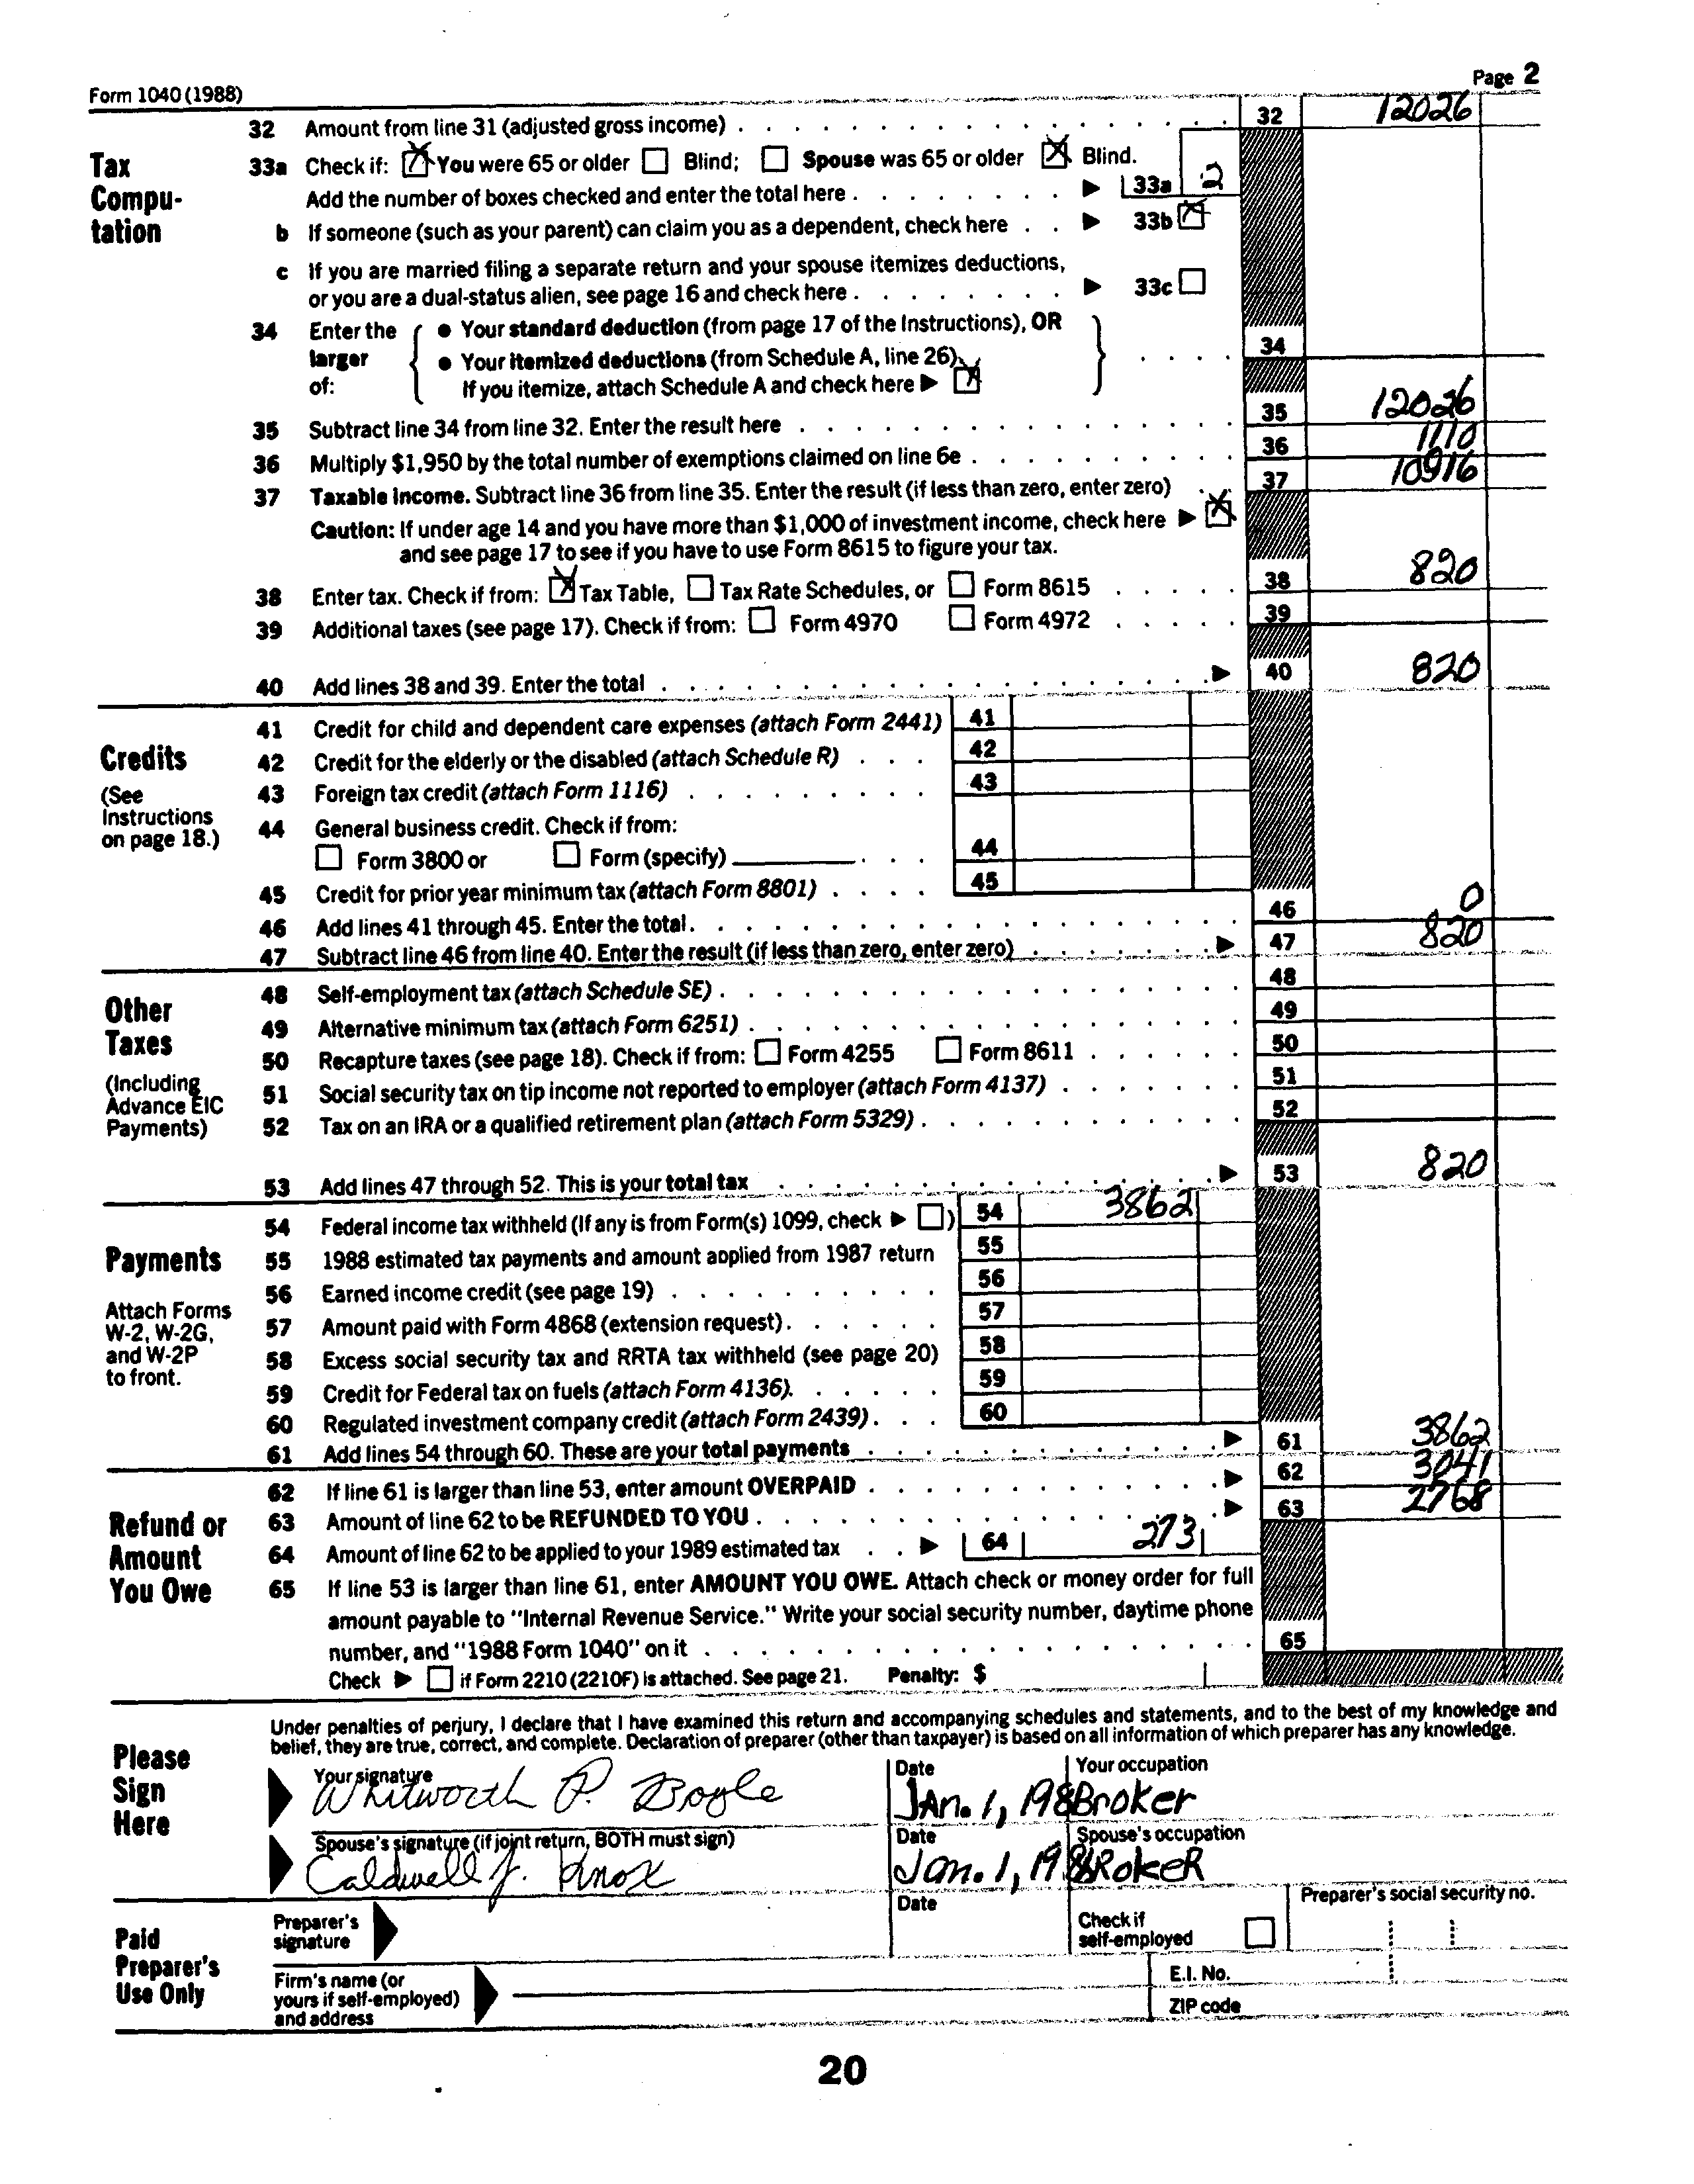 Form 1040 (1988) Page 2
32 Amount from line 31 (adjusted gross income) 32 12026
Tax Compu-tation
33a Check if: ☒ You were 65 or older ☐ Blind; ☐ Spouse was 65 or older ☒ Blind.
Add the number of boxes checked and enter the total here ▶ 33a 2
b If someone (such as your parent) can claim you as a dependent, check here ▶ 33b ☒
c If you are married filing a separate return and your spouse itemizes deductions,
or you are a dual-status alien, see page 16 and check here ▶ 33c ☐
34 Enter the larger of: ● Your standard deduction (from page 17 of the Instructions), OR
● Your itemized deductions (from Schedule A, line 26). 34
If you itemize, attach Schedule A and check here ▶ ☒
35 Subtract line 34 from line 32. Enter the result here 35 12026
36 Multiply $1,950 by the total number of exemptions claimed on line 6e 36 1110
37 Taxable income. Subtract line 36 from line 35. Enter the result (if less than zero, enter zero) 37 10916
Caution: If under age 14 and you have more than $1,000 of investment income, check here ▶ ☒
and see page 17 to see if you have to use Form 8615 to figure your tax.
38 Enter tax. Check if from: ☒ Tax Table, ☐ Tax Rate Schedules, or ☐ Form 8615 38 820
39 Additional taxes (see page 17). Check if from: ☐ Form 4970 ☐ Form 4972 39
40 Add lines 38 and 39. Enter the total ▶ 40 820
Credits
(See Instructions on page 18.)
41 Credit for child and dependent care expenses (attach Form 2441) 41
42 Credit for the elderly or the disabled (attach Schedule R) 42
43 Foreign tax credit (attach Form 1116) 43
44 General business credit. Check if from:
☐ Form 3800 or ☐ Form (specify) 44
45 Credit for prior year minimum tax (attach Form 8801) 45
46 Add lines 41 through 45. Enter the total 46 0
47 Subtract line 46 from line 40. Enter the result (if less than zero, enter zero) ▶ 47 820
Other Taxes
(Including Advance EIC Payments)
48 Self-employment tax (attach Schedule SE) 48
49 Alternative minimum tax (attach Form 6251) 49
50 Recapture taxes (see page 18). Check if from: ☐ Form 4255 ☐ Form 8611 50
51 Social security tax on tip income not reported to employer (attach Form 4137) 51
52 Tax on an IRA or a qualified retirement plan (attach Form 5329) 52
53 Add lines 47 through 52. This is your total tax ▶ 53 820
Payments
Attach Forms W-2, W-2G, and W-2P to front.
54 Federal income tax withheld (If any is from Form(s) 1099, check ▶ ☐) 54 3862
55 1988 estimated tax payments and amount applied from 1987 return 55
56 Earned income credit (see page 19) 56
57 Amount paid with Form 4868 (extension request) 57
58 Excess social security tax and RRTA tax withheld (see page 20) 58
59 Credit for Federal tax on fuels (attach Form 4136) 59
60 Regulated investment company credit (attach Form 2439) 60
61 Add lines 54 through 60. These are your total payments ▶ 61 3862
Refund or Amount You Owe
62 If line 61 is larger than line 53, enter amount OVERPAID ▶ 62 3041
63 Amount of line 62 to be REFUNDED TO YOU ▶ 63 2768
64 Amount of line 62 to be applied to your 1989 estimated tax ▶ 64 273
65 If line 53 is larger than line 61, enter AMOUNT YOU OWE. Attach check or money order for full
amount payable to "Internal Revenue Service." Write your social security number, daytime phone
number, and "1988 Form 1040" on it 65
Check ▶ ☐ if Form 2210 (2210F) is attached. See page 21. Penalty: $
Please Sign Here
Under penalties of perjury, I declare that I have examined this return and accompanying schedules and statements, and to the best of my knowledge and
belief, they are true, correct, and complete. Declaration of preparer (other than taxpayer) is based on all information of which preparer has any knowledge.
Your signature Date Your occupation
Whitworth P. Bogle JAn. 1, 198 Broker
Spouse's signature (if joint return, BOTH must sign) Date Spouse's occupation
Caldwell J. Knox Jan. 1, 198 BRokeR
Paid Preparer's Use Only
Preparer's signature Date Check if self-employed ☐ Preparer's social security no.
Firm's name (or yours if self-employed) and address E.I. No.
ZIP code
20